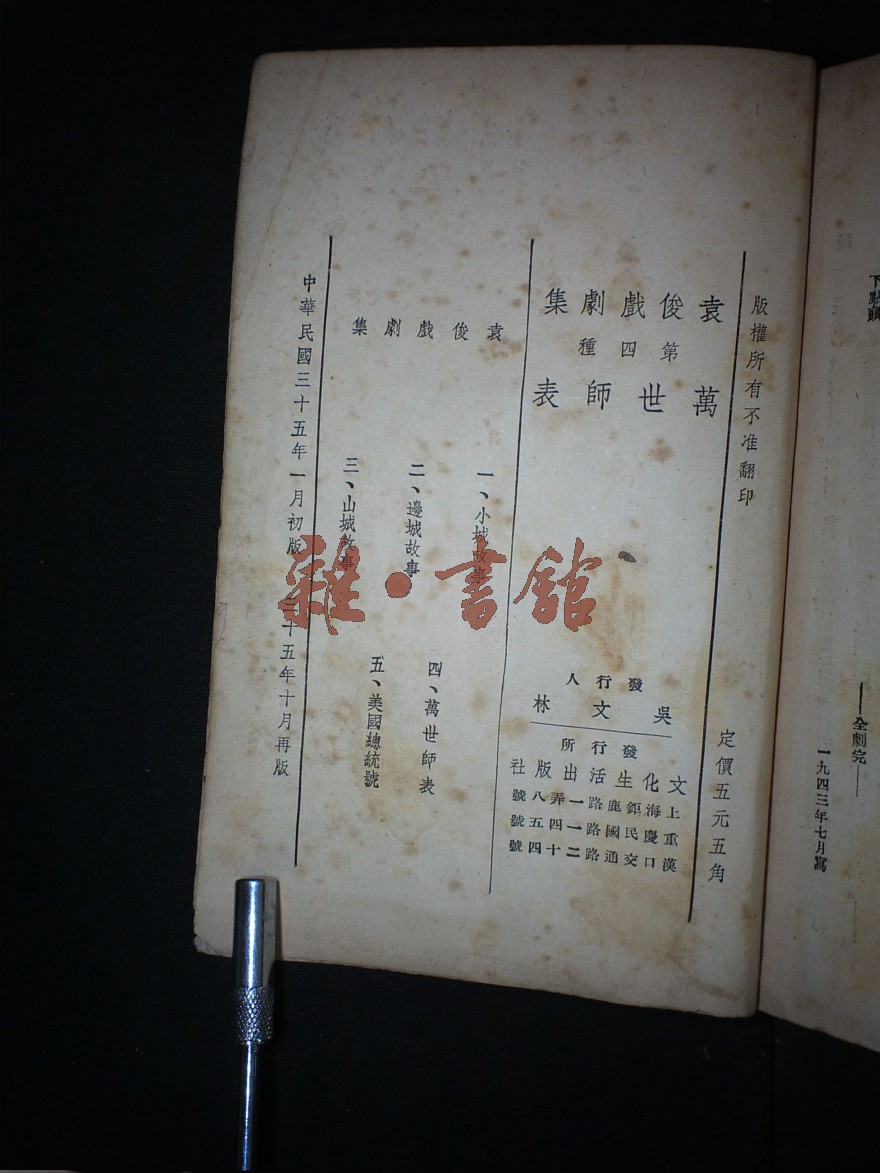 ——全劇完——
一九四三年七月寫
版權所有不准翻印
定價五元五角
袁俊戲劇集
第四種
萬世師表
發行人
吳文林
發行所
文化生活出版社
上海鉅鹿路一弄八號
重慶民國路一四五號
漢口交通路二十四號
袁俊戲劇集
一、小城故事
二、邊城故事
三、山城故事
四、萬世師表
五、美國總統號
中華民國三十五年一月初版
三十五年十月再版
雜·書館